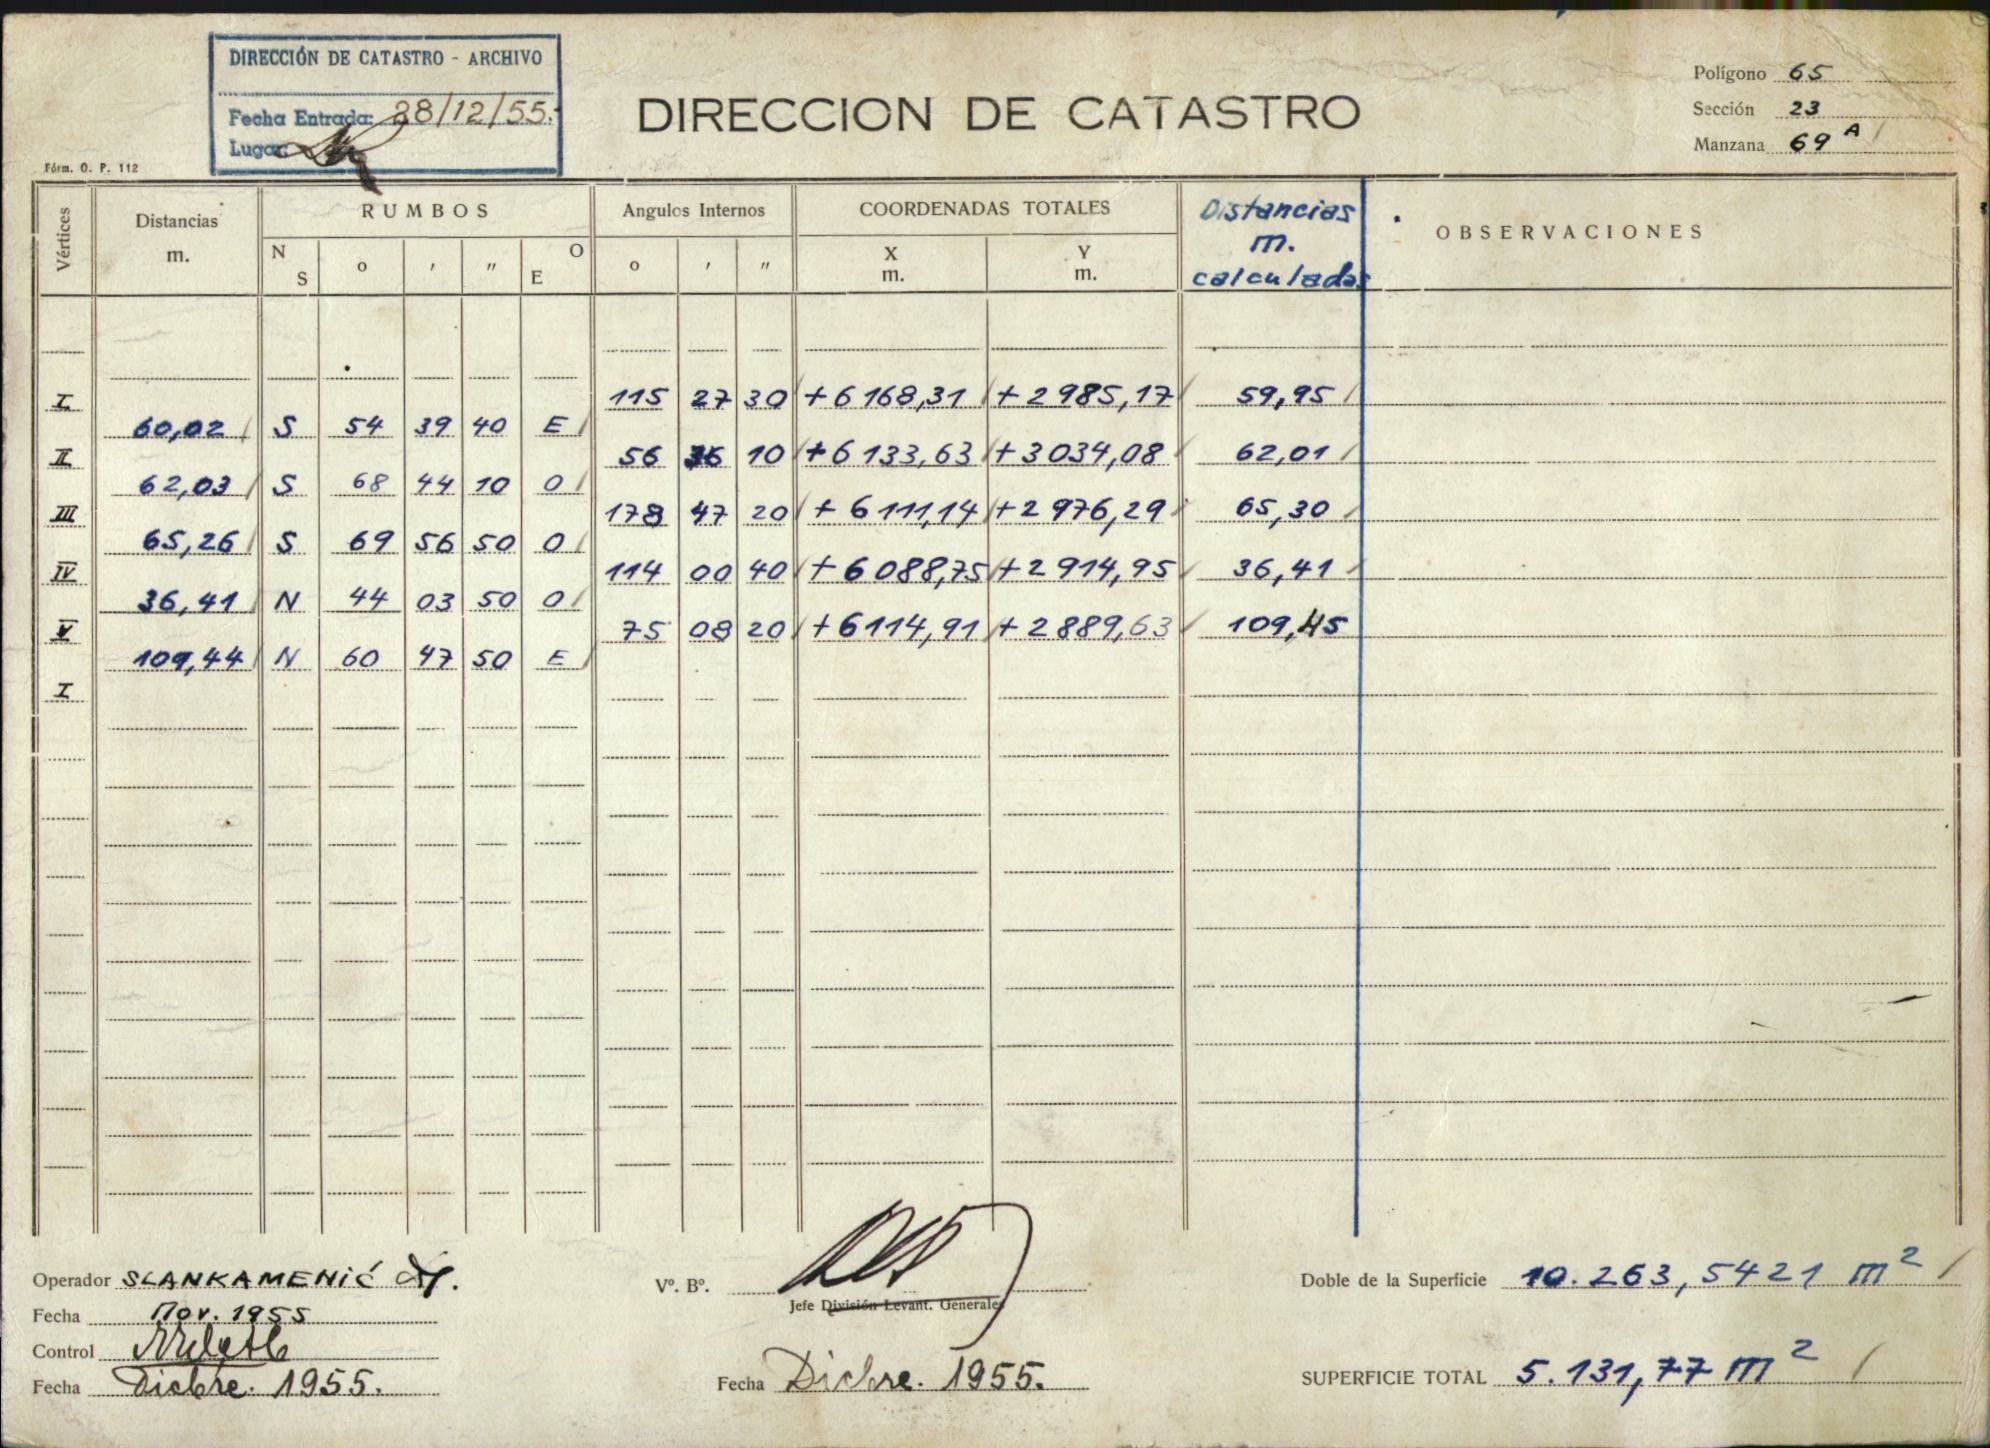 DIRECCIÓN DE CATASTRO - ARCHIVO
Fecha Entrada: 28/12/55.
Lugar:
Fórm. O. P. 112
DIRECCION DE CATASTRO
Polígono 65
Sección 23
Manzana 69 A
Vértices Distancias m. RUMBOS Angulos Internos COORDENADAS TOTALES Distancias m. calculadas OBSERVACIONES
N S o ' " O E o ' " X m. Y m.
I 115 27 30 +6168,31 +2985,17 59,95
60,02 S 54 39 40 E
II 56 36 10 +6133,63 +3034,08 62,01
62,03 S 68 44 10 O
III 178 47 20 +6111,14 +2976,29 65,30
65,26 S 69 56 50 O
IV 114 00 40 +6088,75 +2914,95 36,41
36,41 N 44 03 50 O
V 75 08 20 +6114,91 +2889,63 109,45
109,44 N 60 47 50 E
I
Operador SLANKAMENIĆ
Fecha Nov. 1955
Control
Fecha Dicbre. 1955.
Vº. Bº.
Jefe División Levant. Generales
Fecha Dicbre. 1955.
Doble de la Superficie 10.263,5421 m2
SUPERFICIE TOTAL 5.131,77 m2